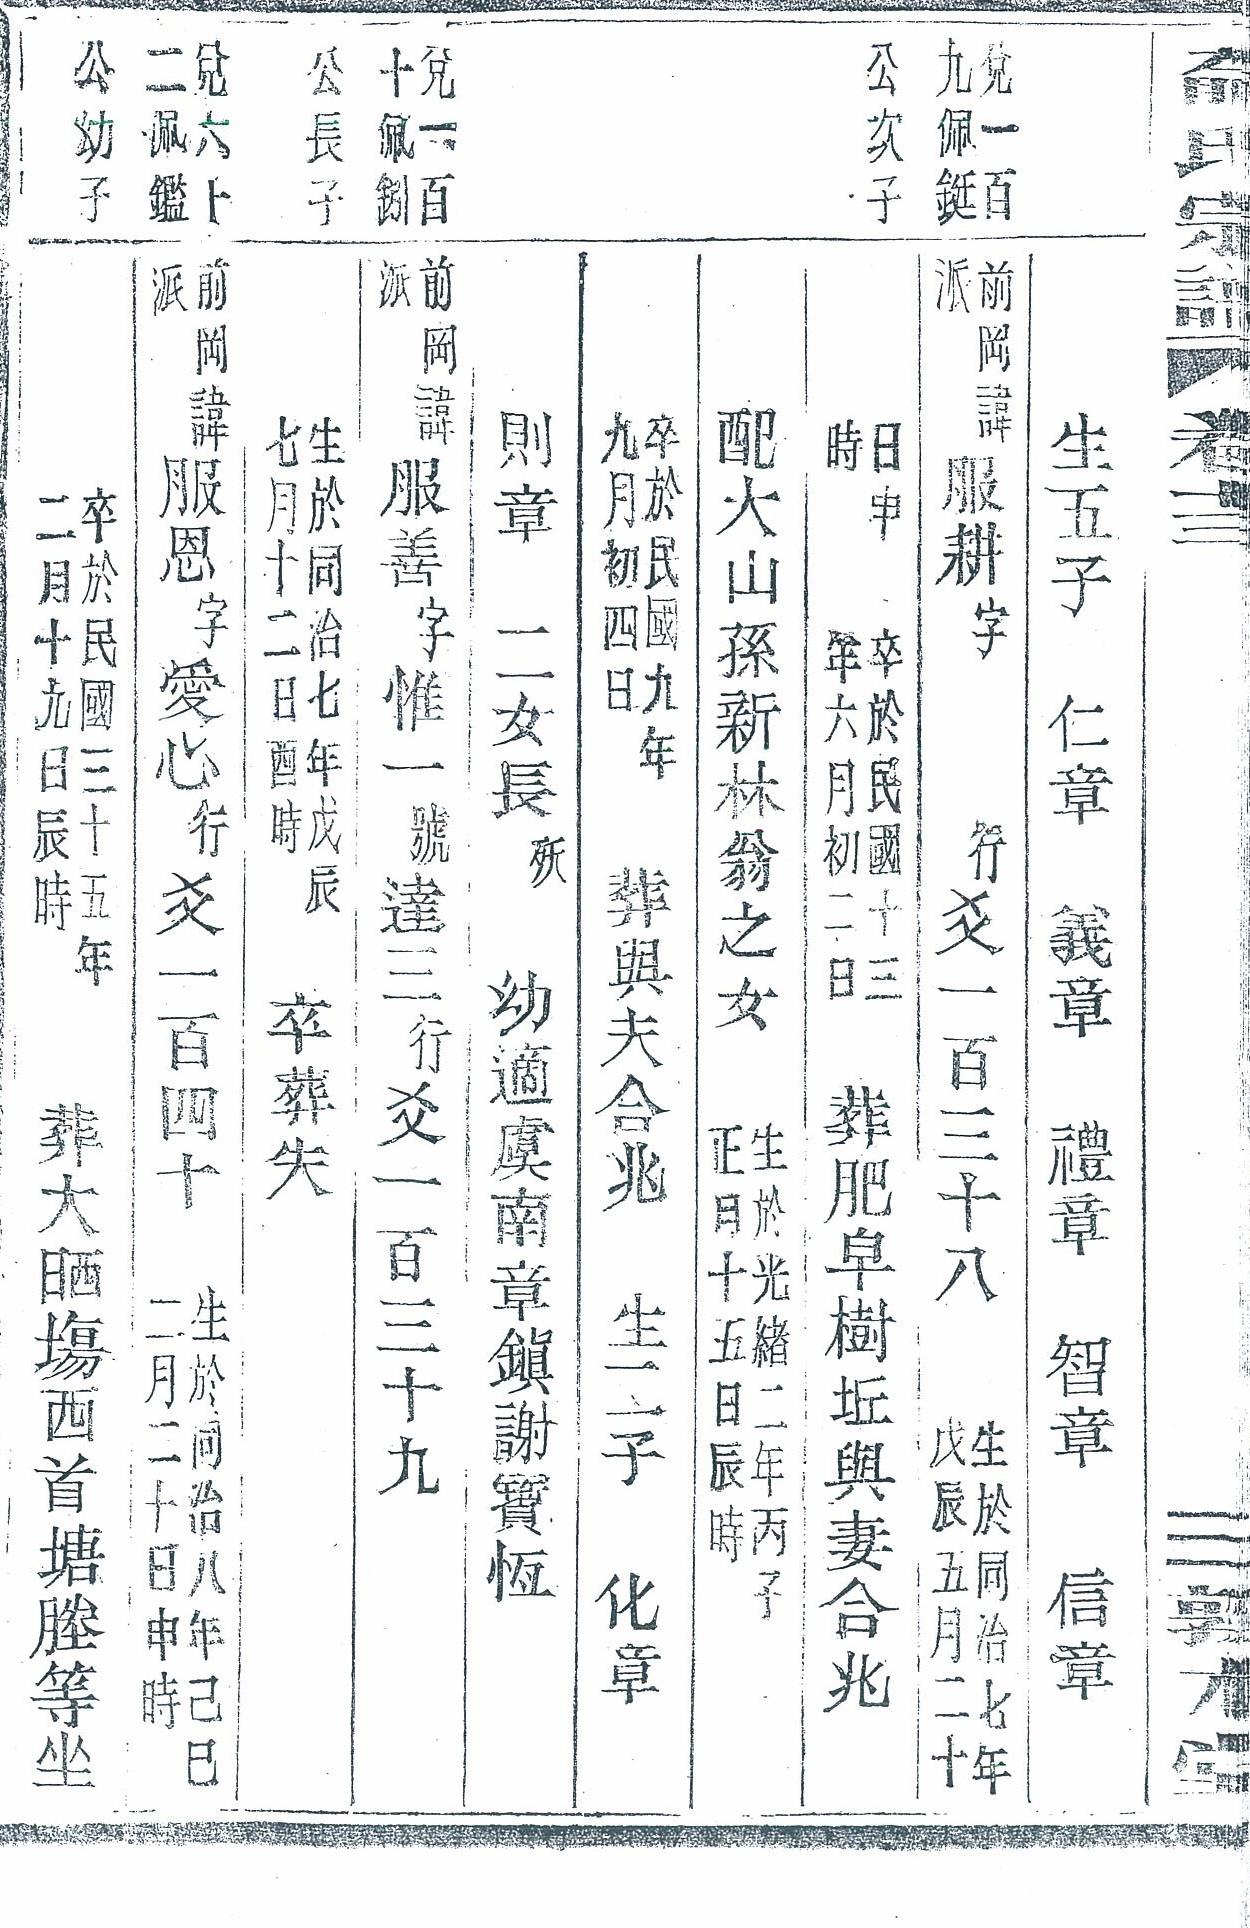 氏宗譜 卷三
生五子 仁章 義章 禮章 智章 信章
兌一百
九佩鋌
公次子
前岡派 諱服耕字 行爻一百三十八 生於同治七年
戊辰五月二十
日申
時 卒於民國十三
年六月初二日 葬肥皁樹坵與妻合兆
配大山孫新林翁之女 生於光緒二年丙子
正月十五日辰時
卒於民國九年
九月初四日 葬與夫合兆 生二子 化章
則章 二女長殀 幼適虞南章鎮謝寶恆
兌一百
十佩釧
公長子
前岡派 諱服善字惟一號達三行爻一百三十九
生於同治七年戊辰
七月十二日酉時 卒葬失
兌六十
二佩鑑
公幼子
前岡派 諱服恩字愛心行爻一百四十 生於同治八年己巳
二月二十日申時
卒於民國三十五年
二月十九日辰時 葬大晒塲西首塘塍等坐